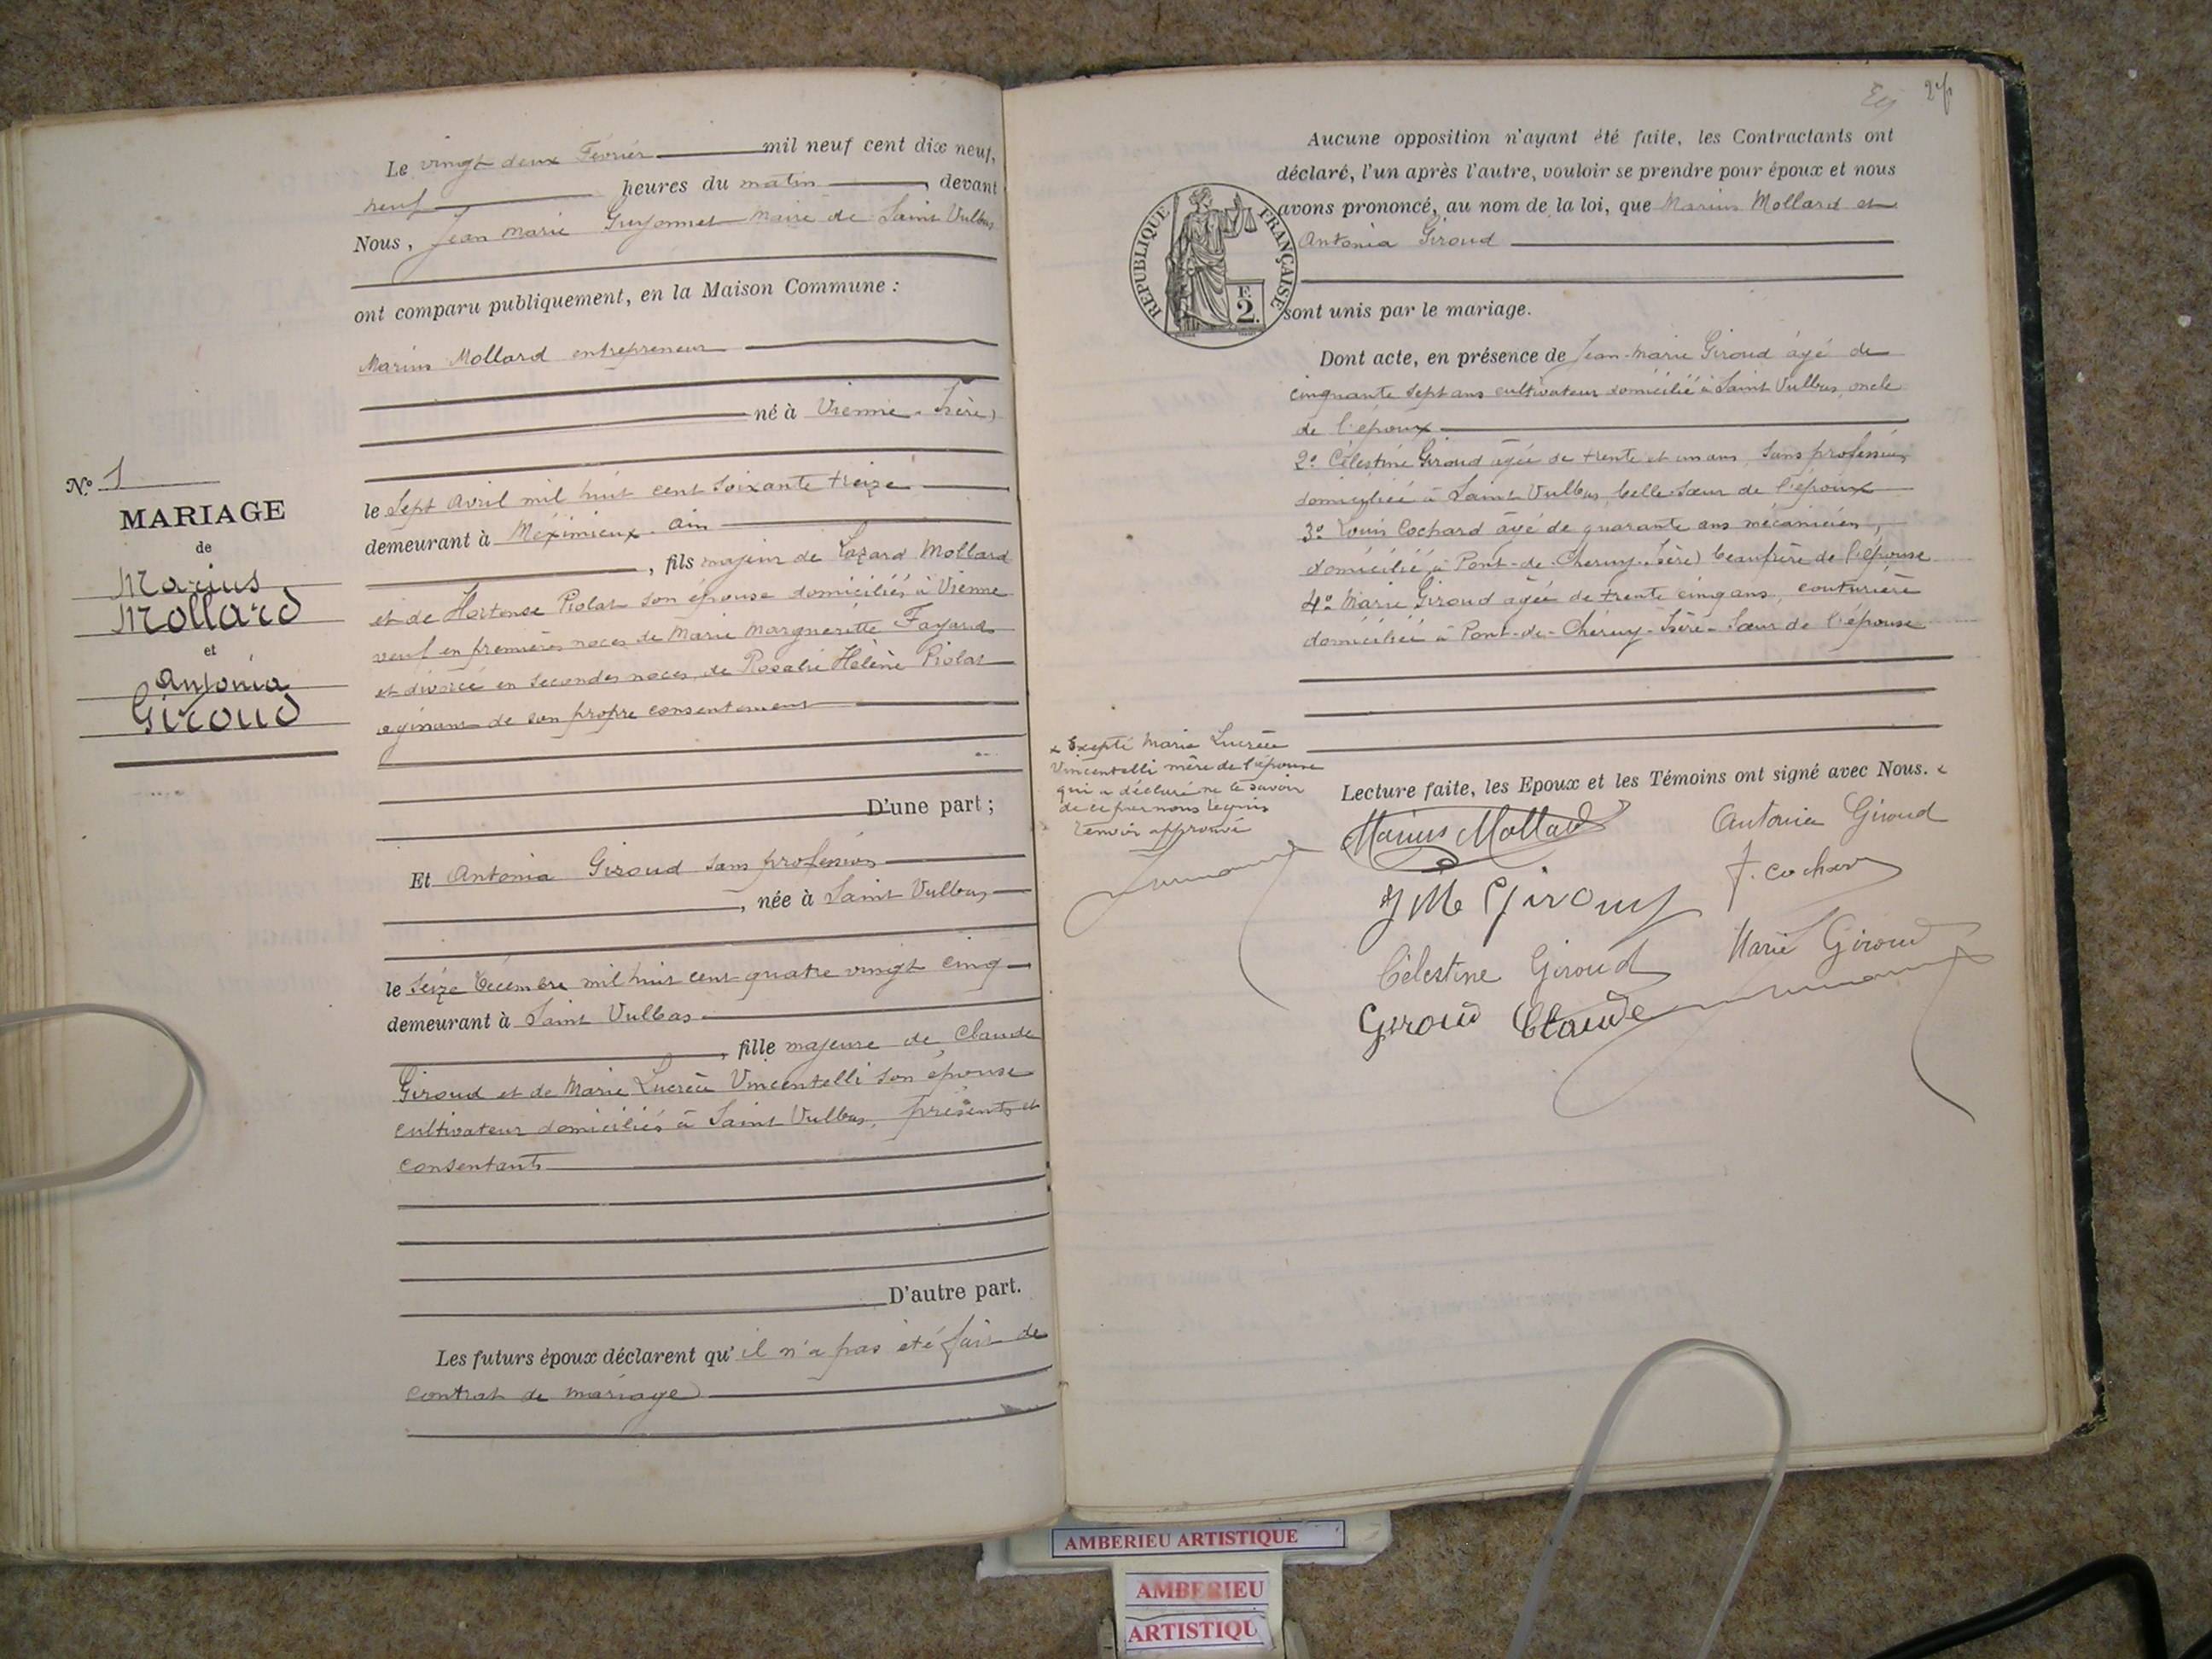 Le vingt deux Février mil neuf cent dix neuf,
neuf heures du matin, devant
Nous, Jean Marie Guyonnet Maire de Saint Vulbas
ont comparu publiquement, en la Maison Commune :
Marius Mollard entrepreneur
né à Vienne. Isère)
le Sept Avril mil huit cent soixante treize
demeurant à Méximieux. Ain
, fils majeur de Lazard Mollard
et de Hortense Piolat son épouse domiciliés à Vienne
veuf en premières noces de Marie Margueritte Fayard
et divorcé en secondes noces, de Rosalie Hélène Piolat
agissant de son propre consentement
D'une part ;
N° 1
MARIAGE
de
Marius
Mollard
et
Antonia
Giroud
Et Antonia Giroud sans profession
, née à Saint Vulbas
le Seize Décembre mil huit cent quatre vingt cinq
demeurant à Saint Vulbas
, fille majeure de Claude
Giroud et de Marie Lucrèce Vincentelli son épouse
cultivateur domiciliés à Saint Vulbas, présents et
consentants
D'autre part.
Les futurs époux déclarent qu'il n'a pas été fait de
contrat de mariage
27
Aucune opposition n'ayant été faite, les Contractants ont
déclaré, l'un après l'autre, vouloir se prendre pour époux et nous
avons prononcé, au nom de la loi, que Marius Mollard et
Antonia Giroud
REPUBLIQUE FRANÇAISE
F.
2.
sont unis par le mariage.
Dont acte, en présence de Jean-Marie Giroud âgé de
cinquante sept ans cultivateur domicilié à Saint Vulbas, oncle
de l'époux
2° Célestine Giroud âgée de trente et un ans, sans profession
domiciliée à Saint Vulbas belle-sœur de l'époux
3° Louis Cochard âgé de quarante ans mécanicien,
domicilié à Pont-de-Cheruy. Isère) beaufrère de l'épouse
4° Marie Giroud âgée de trente cinq ans, couturière
domiciliée à Pont-de-Chéruy-Isère-Sœur de l'épouse
x Excepté Marie Lucrèce
Vincentelli mère de l'épouse
qui a déclaré ne le savoir
de ce par nous requis
renvoi approuvé
Lecture faite, les Epoux et les Témoins ont signé avec Nous. x
Marius Mollard
Antonia Giroud
J M Giroud
Cochard
Célestine Giroud
Marie Giroud
Giroud Claude
AMBERIEU ARTISTIQUE
AMBERIEU
ARTISTIQU